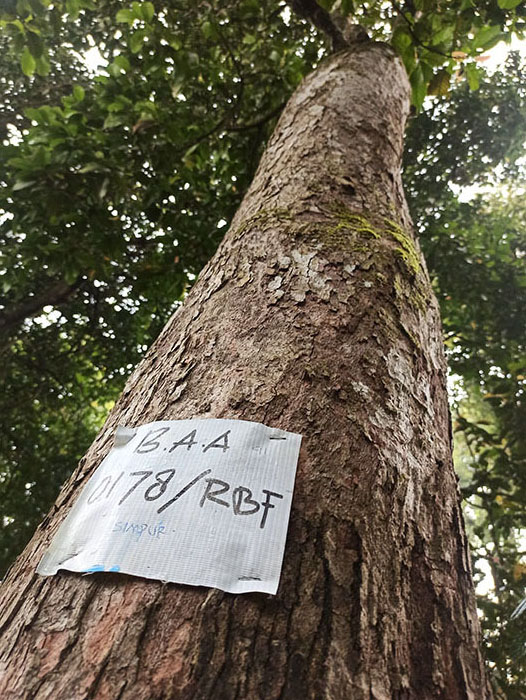 B.A.A
0178/RBF
SIMPUR